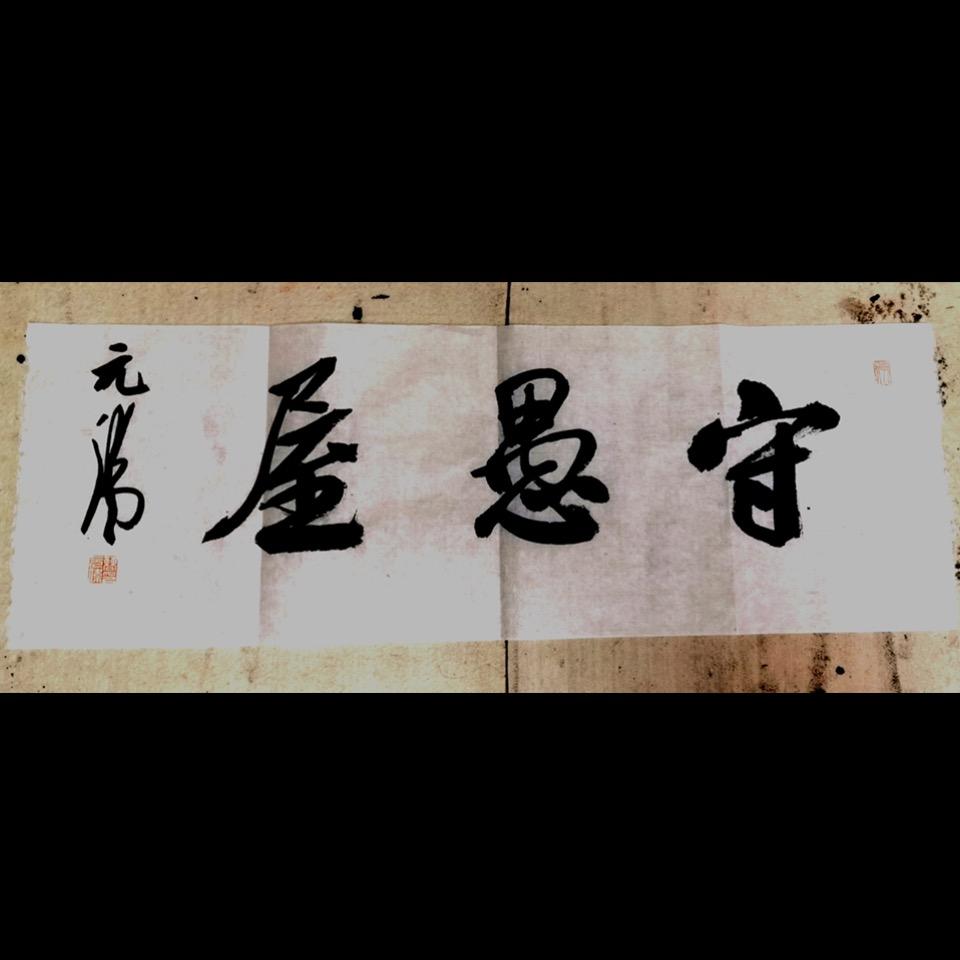 守愚屋
元